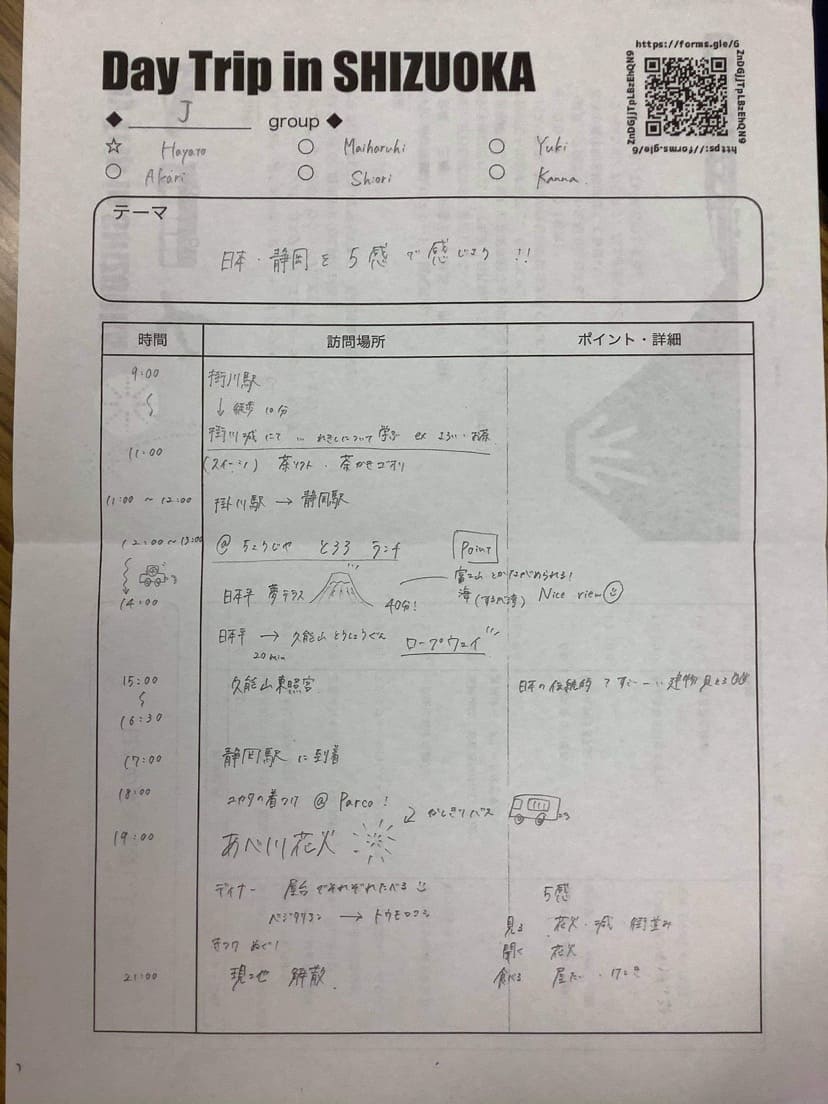 Day Trip in SHIZUOKA
https://forms.gle/6
ZnDGjJTpLBzEhQN9
https://forms.gle/6
ZnDGjJTpLBzEhQN9
◆ J group ◆
☆ Hayato ○ Maiharuhi ○ Yuki
○ Akari ○ Shiori ○ Kanna
テーマ
日本・静岡を5感で感じよう!!
時間 訪問場所 ポイント・詳細
9:00 掛川駅
↓ 徒歩10分
掛川城にて … れきしについて学ぶ ex よろい・お茶
11:00
(スイーツ) 茶ソフト・茶かきゴオリ
11:00 ~ 12:00 掛川駅 → 静岡駅
12:00~13:00 @ ちょうじや とろろ ランチ Point
富士山とかながめられる!
14:00 日本平 夢テラス 40分! 海(するが湾) Nice view
日本平 → 久能山とうしょうぐう ロープウェイ
20min
15:00 久能山東照宮 日本の伝統的ですごーい建物見える
16:30
17:00 静岡駅に到着
18:00 ユカタの着つけ @ Parco! かしきりバス
19:00 あべ川花火
ディナー 屋台でそれぞれたべる 5感
ベジタリアン → トウモロコシ 見る 花火・城 街並み
聞く 花火
21:00 現地 解散 食べる 屋たい